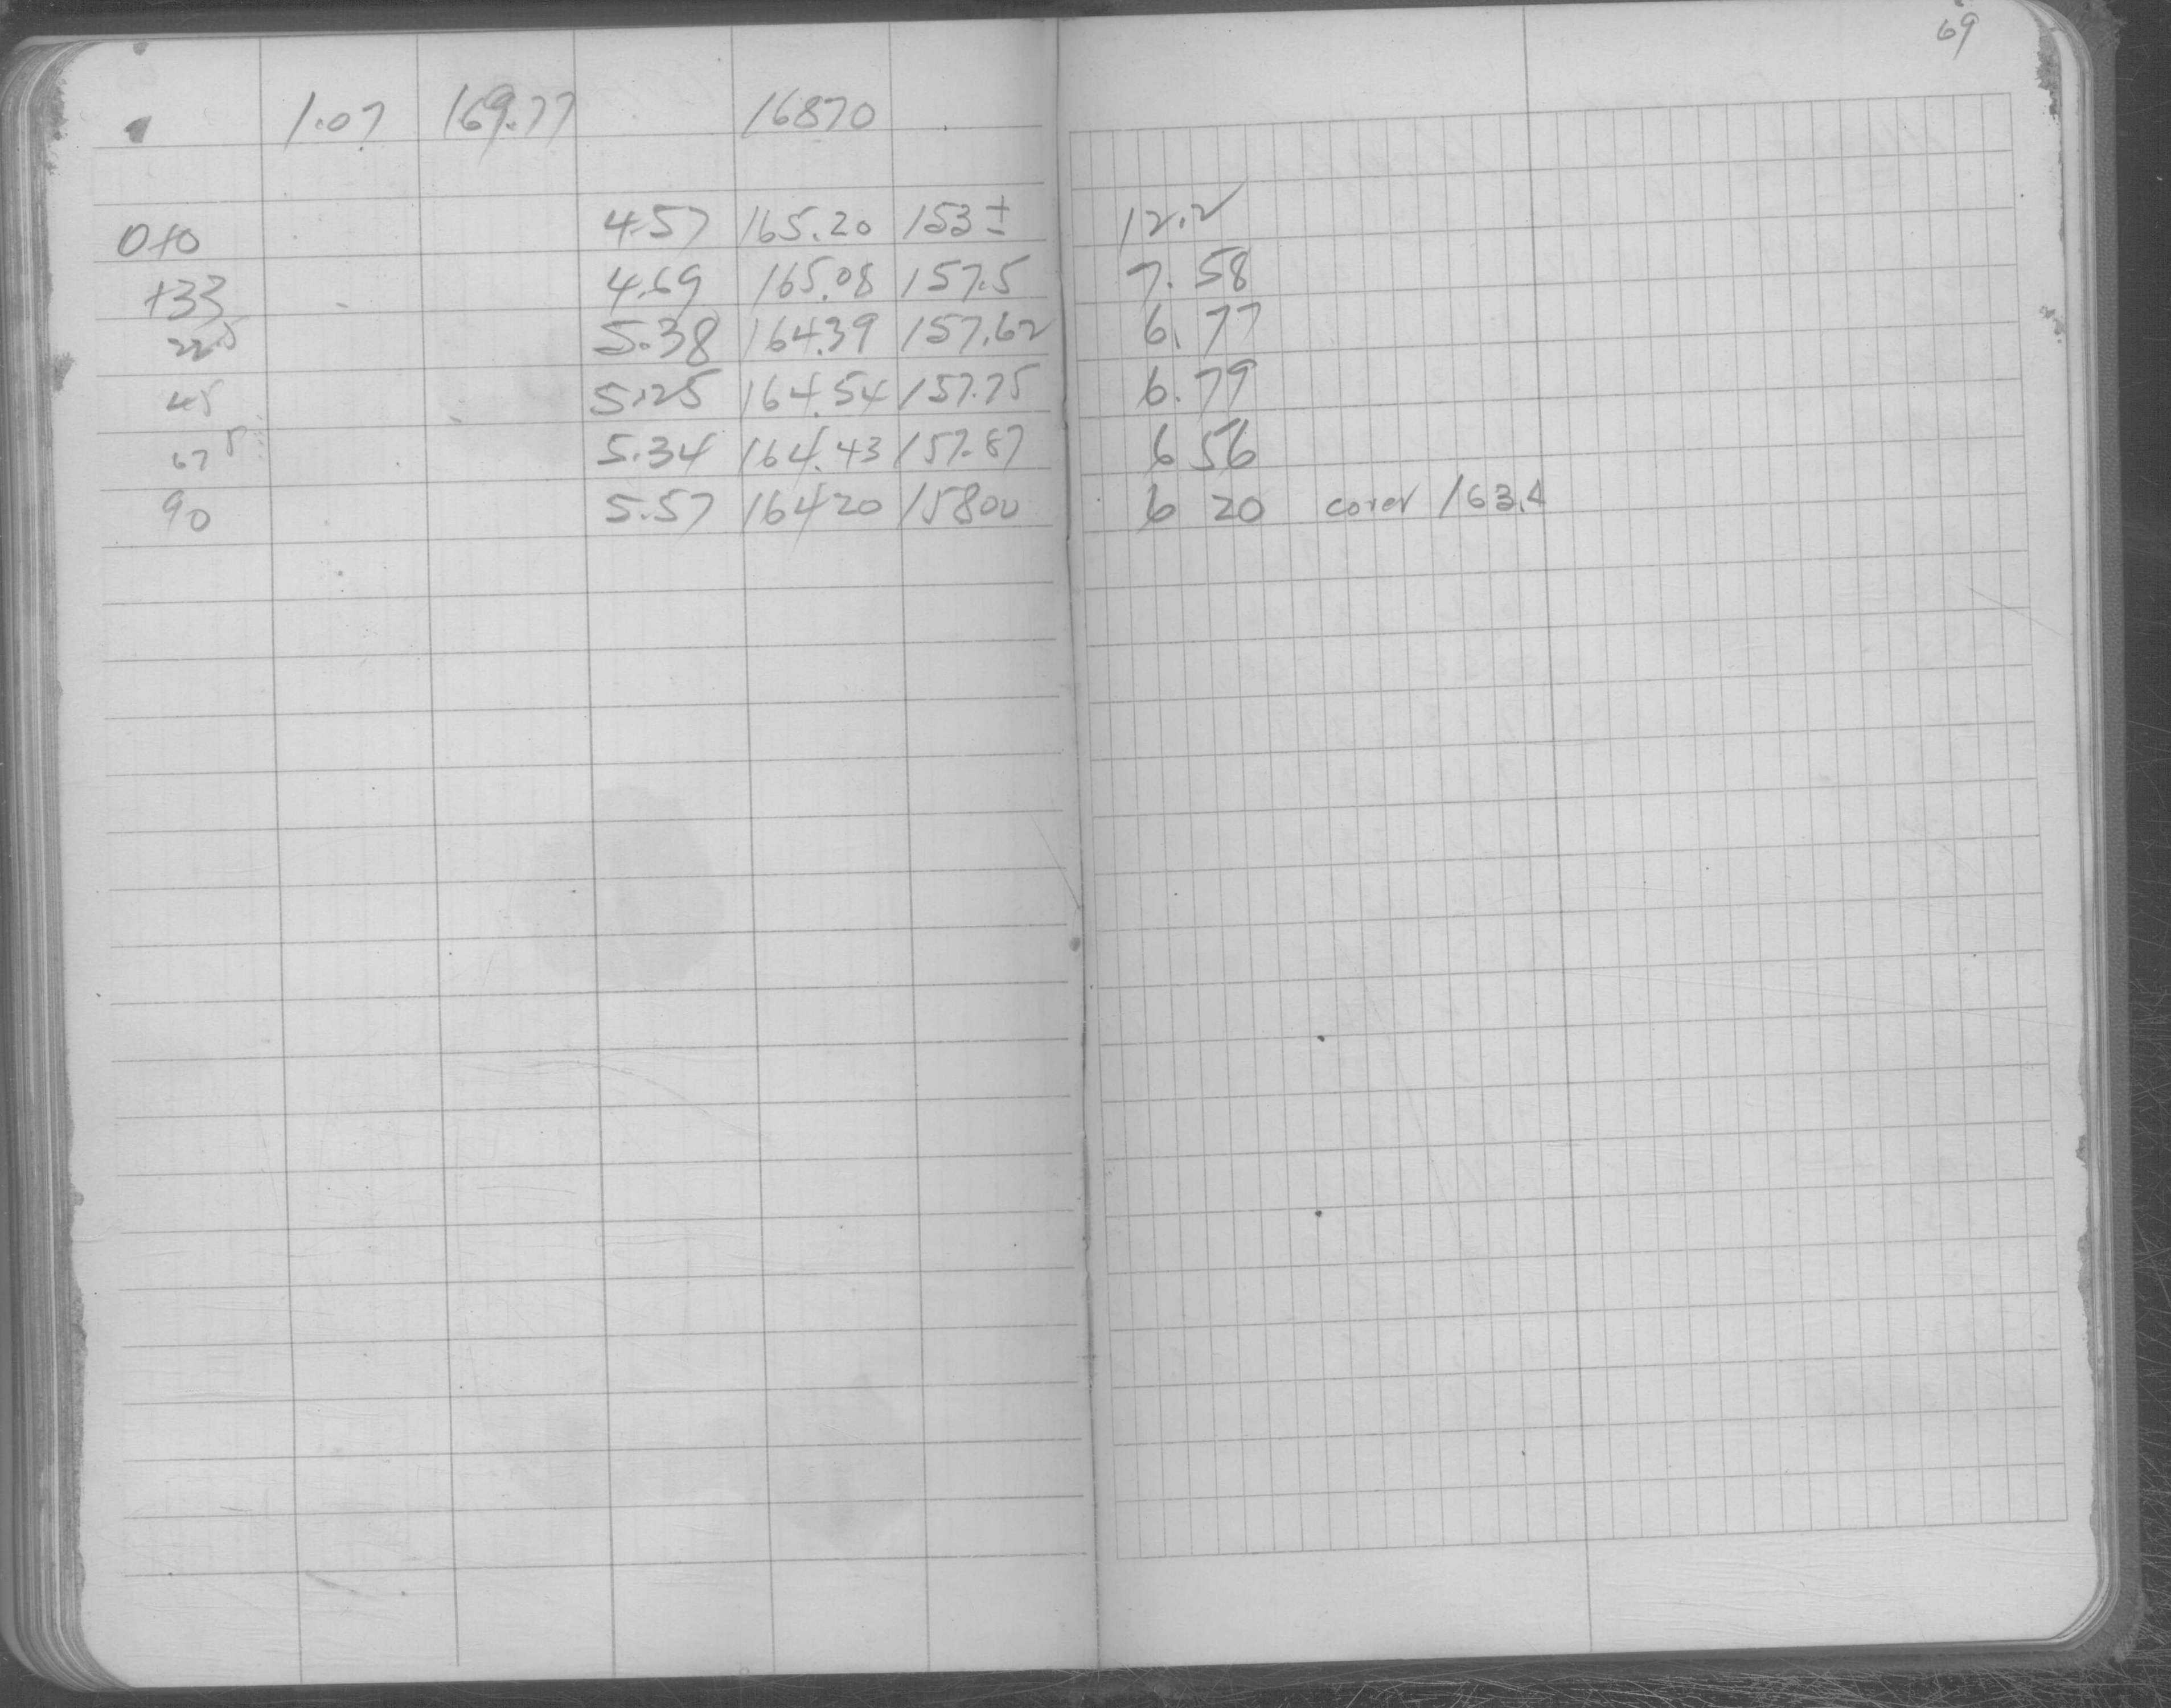 69
1.07 169.77 16870
0+0 4.57 165.20 153± 12.2
+33 4.69 165.08 157.5 7.58
22⁵ 5.38 164.39 157.62 6.77
45 5.25 164.54 157.75 6.79
67⁵ 5.34 164.43 157.87 6 56
90 5.57 16420 15800 6 20 cover 163.4